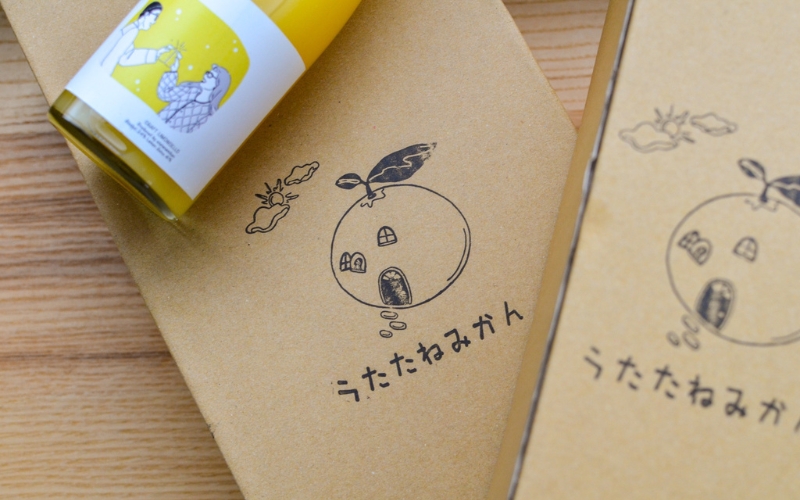 CRAFT LIMONCELLO
うたたねみかん
うたたねみか